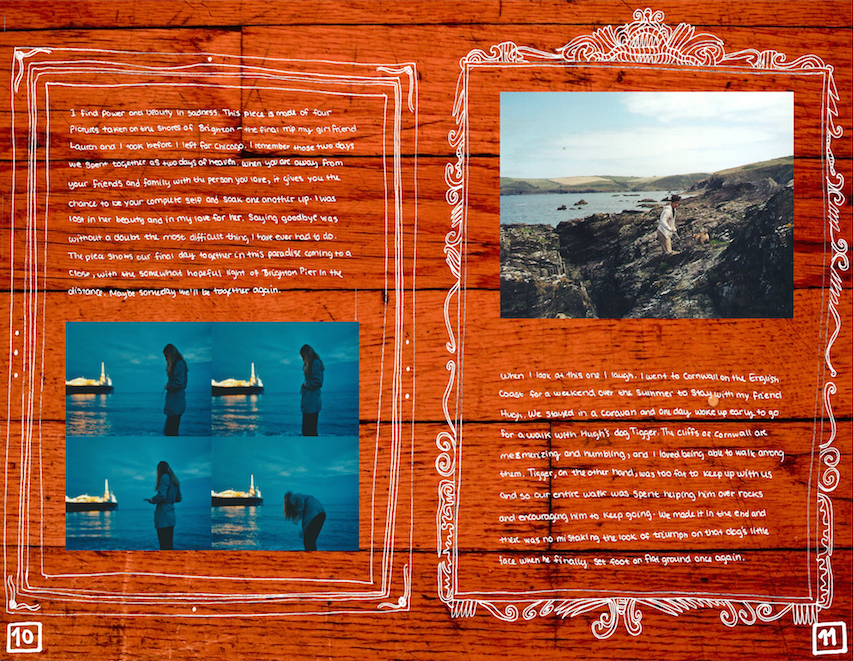 I find power and beauty in sadness. This piece is made of four
Pictures taken on the shores of Brighton - the final trip my girlfriend
Lauren and I took before I left for Chicago. I remember those two days
we spent together as two days of heaven. when you are away from
your friends and family with the person you love, it gives you the
chance to be your complete self and soak one another up. I was
lost in her beauty and in my love for her. Saying goodbye was
without a doubt the most difficult thing I have ever had to do.
The piece shows our final day together in this paradise coming to a
close, with the somewhat hopeful light of Brighton Pier in the
distance. Maybe someday we'll be together again.
10
When I look at this one I laugh. I went to Cornwall on the English
Coast for a weekend over the summer to stay with my friend
Hugh. We stayed in a caravan and one day woke up early to go
for a walk with Hugh's dog Tigger. The cliffs of cornwall are
mesmerizing and humbling, and I loved being able to walk among
them. Tigger, on the other hand, was too fat to keep up with us
and so our entire walk was spent helping him over rocks
and encouraging him to keep going. We made it in the end and
there was no mistaking the look of triumph on that dog's little
face when he finally set foot on flat ground once again.
11